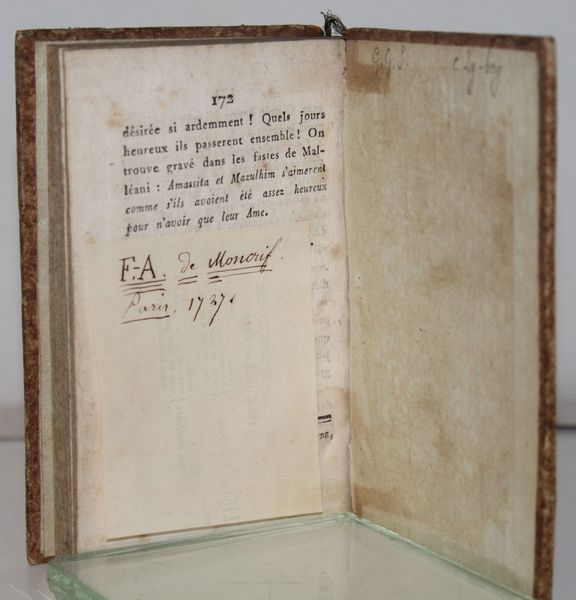 172
désirée si ardemment ! Quels jours
heureux ils passerent ensemble ! On
trouve gravé dans les fastes de Mal-
léani : Amassita et Mazulhim s'aimerent
comme s'ils avoient été assez heureux
pour n'avoir que leur Ame.
F.-A. de Moncrif.
Paris. 1727.
G.J.S.